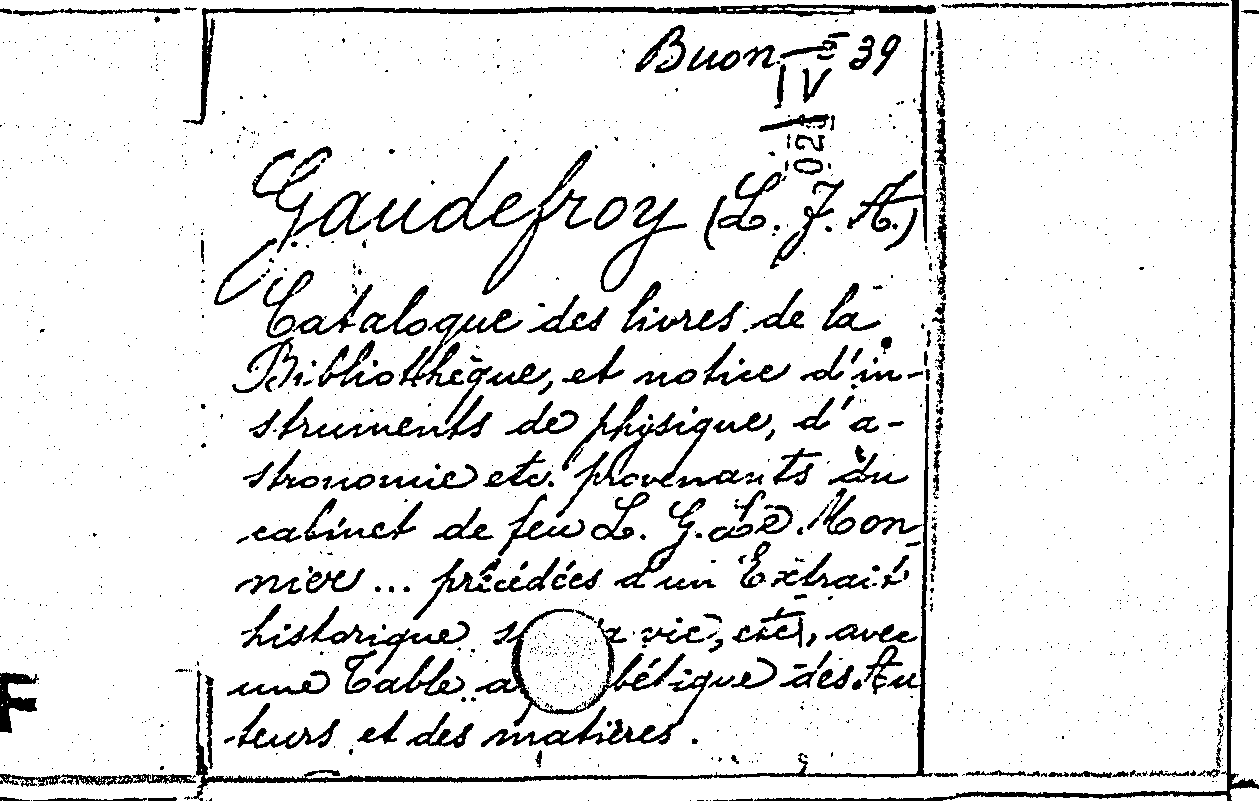 Buon 39
IV
Gaudefroy (L. J. A.)
Catalogue des livres de la
Bibliothèque, et notice d'in-
struments de physique, d'a-
stronomie etc. provenants du
cabinet de feu L. G. Le Mon-
nier... précédées d'un Extrait
historique vie, etc, avec
une Table des Au
teurs et des matières.
F